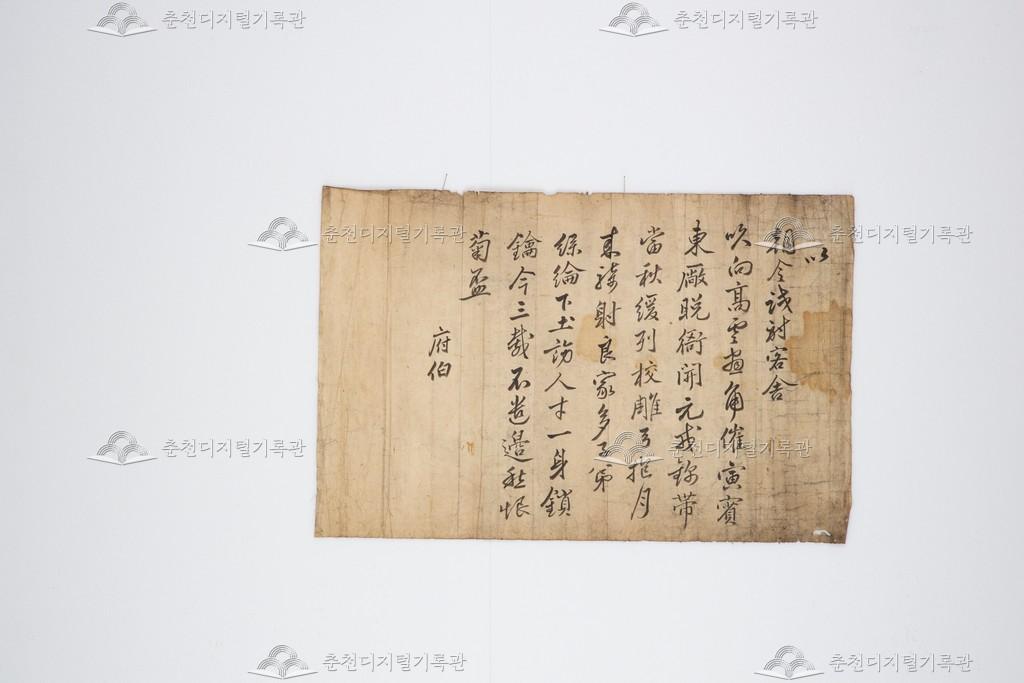 以
朝令試射客舍
吹向高雲畫角催寅賓
東廠晩衙開元戎錦帶
當秋緩列校雕弓抱月
來騎射良家多子弟
綠綸下土訪人才一身鎖
鑰今三載不	邊愁恨
菊盃
府伯
춘천디지털기록관
춘천디지털기록관
춘천디지털기록관
춘천디지털기록관
춘천디지털기록관
춘천디지털기록관
춘천디지털기록관
춘천디지털기록관